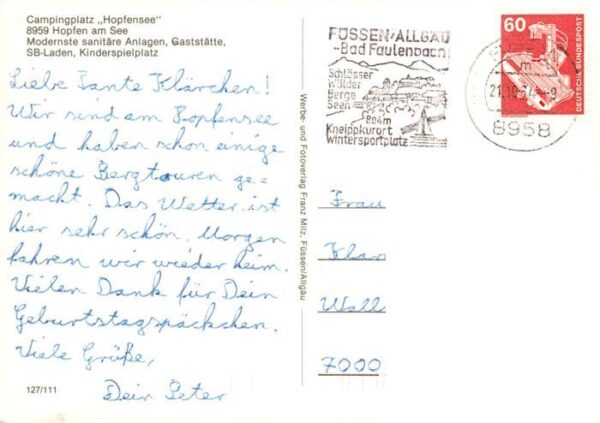 Campingplatz „Hopfensee"
8959 Hopfen am See
Modernste sanitäre Anlagen, Gaststätte,
SB-Laden, Kinderspielplatz
Liebe Tante Klärchen!
Wir sind am Hopfensee
und haben schon einige
schöne Bergtouren ge=
macht. Das Wetter ist
hier sehr schön. Morgen
fahren wir wieder heim.
Vielen Dank für Dein
Geburtstagspäckchen.
Viele Grüße,
Dein Peter
127/111
Werbe- und Fotoverlag Franz Milz, Füssen/Allgäu
FÜSSEN/ALLGÄU
-Bad Faulenbach
Schlösser
Wälder
Berge
Seen
804m
Kneippkurort
Wintersportplatz
8958
60
DEUTSCHE BUNDESPOST
Frau
Klar
Wall
7000